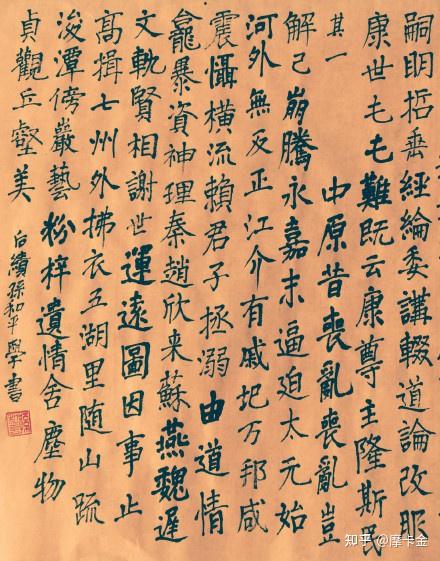 嗣明哲垂經綸委講輟道論改服
康世屯屯難既云康尊主隆斯民
其一 中原昔喪亂喪亂豈
解已崩騰永嘉末逼迫太元始
河外無反正江介有戚圮万邦咸
震懾橫流賴君子拯溺由道情
龕暴資神理秦趙欣来蘇燕魏遲
文軌賢相謝世運遠圖因事止
高揖七州外拂衣五湖里随山疏
浚潭傍巖藝枌梓遺情舍塵物
貞觀丘壑美 白續孫和平學書
知乎 @摩卡金